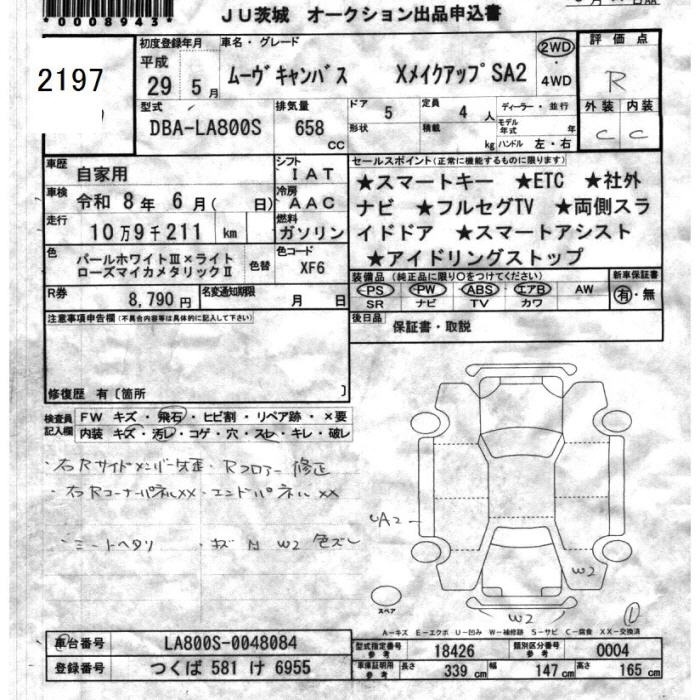 *0008943*
JU茨城 オークション出品申込書
2197
初度登録年月
平成
29 5月
車名・グレード
ムーヴキャンバス XメイクアップSA2
2WD
・
4WD
評価点
R
外装 内装
C C
型式
DBA-LA800S
排気量
658 CC
ドア 5
形状
定員 4 人
積載 kg
ディーラー・並行
モデル年式 年
ハンドル 左・右
車歴
自家用
シフト
IAT
車検
令和 8年 6月( 日)
冷房
AAC
走行
10万9千211 km
燃料
ガソリン
色
パールホワイトⅢ×ライト
ローズマイカメタリックⅡ
色替
色コード
XF6
R券
8,790円
名変通知期限
月 日
セールスポイント(正常に機能するものに限ります)
★スマートキー ★ETC ★社外
ナビ ★フルセグTV ★両側スラ
イドドア ★スマートアシスト
★アイドリングストップ
装備品 (純正品に限り○をつけてください)
新車保証書
PS PW ABS エアB AW
SR ナビ TV カワ
有・無
後日品
保証書・取説
注意事項申告欄(不具合内容等は具体的に記入して下さい)
修復歴 有〔箇所 〕
検査員記入欄
FW キズ・飛石・ヒビ割・リペア跡・×要
内装 キズ・汚レ・コゲ・穴・スレ・キレ・破レ
・右Rサイドメンバー ・Rフロアー 修正
・右RコーナーパネルXX・エンドパネルXX
・シートヘタリ ・キズ W2 色ズレ
UA2
W2
W2
スペア
A-キズ E-エクボ U-凹み W-補修跡 S-サビ C-腐食 XX-交換済
車台番号
LA800S-0048084
型式指定番号 参考
18426
類別区分番号 参考
0004
登録番号
つくば 581 け 6955
車庫証明用 参考
長さ 339 cm 幅 147 cm 高さ 165 cm